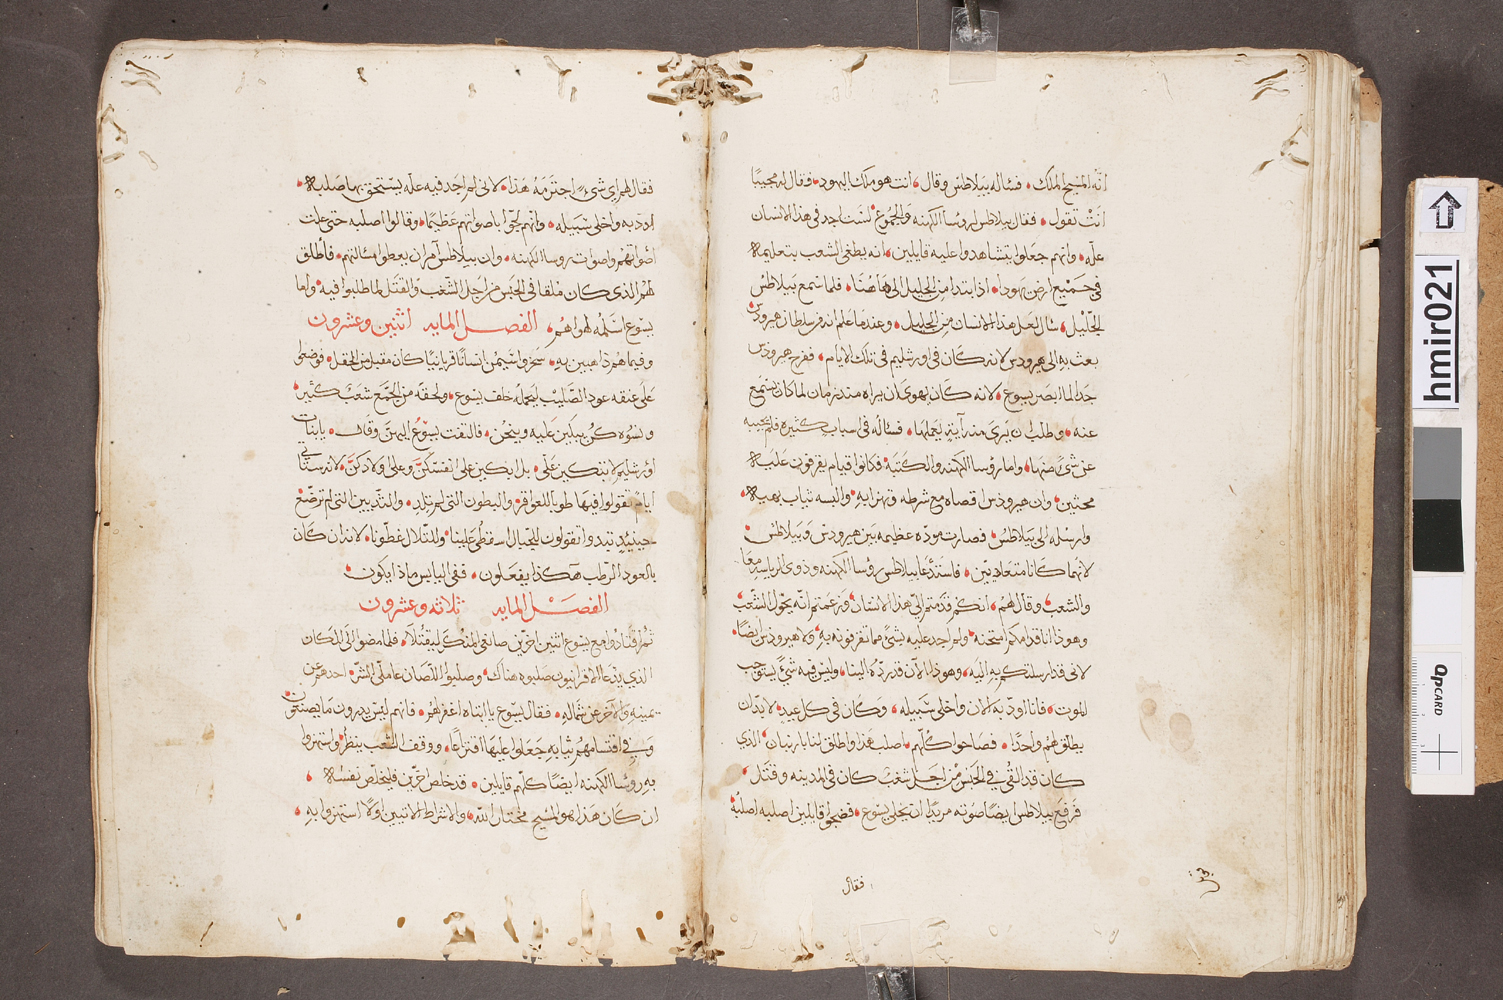 انّه المسيح الملك، فسئاله بيلاطس وقال، انت هو ملك اليهود، فقال له مجيبًا
انتْ تقول، فقال بيلاطس لروسا الكهنه والجموع، لست اجد في هذا الانسان
علّه، وانهم جعلوا يتشاهدوا عليه قايلين، انه يطغي الشعب بتعليمه
في جميع ارض يهودا، اذا بتدا من الجليل الى هاهُنا، فلما سمع بيلاطسُ
الجليل، سال لعل هذا الانسان من الجليل، وعندما علم انه من سلطان هيرودس
بعث به الى هيرودس لانه كان في اورشليم في تلك الايام، ففرح هيرودس
جدا لما ابصر يسوع، لانه كان يهوى ان يراه منذ زمان لما كان يسمع
عنه، وطلب ان يرى منه آية يعملها، فسئاله في اسباب كثيره فلم يجيبه
عن شئ منها، واما روسا الكهنه والكتبة فكانوا قيام يقرفون عليه
محتين، وان هيرودس اقصاه مع شرطه وتهزا به، والبسه ثياب بهيه،
وارسله الى بيلاطسُ، فصارت مودّه عظيمه بين هيرودس وبيلاطسُ
لانهما كانا متعاديين، فاستدعا بيلاطس روسا الكهنه وذوي الرياسه معًا
والشعب، وقال لهم، انكم قدمتم الىّ هذا الانسان، وزعمتم انّه يحوّل الشعب
وهوذا انا قدامكم امتحنه، ولم اجد عليه بشئ مما تقرفونه به، ولا هيرودس ايضًا،
لانى قد ارسلتكم به اليه، وهوذا الان قد ردّه الينا، وليس فيه شئ يستوجب
الموت، فانا اودّبه الان واخلى سبيله، وكان فى كل عيد لا بدّ ان
يطلق لهم واحدًا، فصاحوا كلهم، اصلب هذا واطلق لنا باربنان، الذى
كان قد القى في الحبس من اجل شغب كان في المدينه وقتل،
فرفع بيلاطس ايضًا صوته مريدًا ان يخلى يسوع، فضجوا قايلين اصلبه اصلبهُ
فقال
فقال لهم اي شئ اجترمهُ هذا، لانى لم اجد فيه علّه يستحق بها صلبه،
اودبه واخلى سبيله، وانهم لجّوا باصواتهم عظيمًا، وقالوا اصلبه حتى علت
اصواتهم واصوات روسا الكهنه، وان بيلاطس آمر ان يعطوا مسالتهم، فاطلق
لهم الذى كان ملقا في الحبس من اجل الشغب والقتل لما طلبوا فيه، واما
يسوع اسلمهُ لهواهُم، الفصل المايه اثنين وعشرون
وفيما هم ذاهبين به، سخروا شيمون انسانًا قريانيًا كان مقبل من الحقل، فوضعوا
على عنقه عود الصليب ليحمله خلف يسوع، ولحقه من الجمع شعب كثير،
ونسوه كن يبكين عليه وينحن، فالتفت يسوع اليهنّ وقال، يا بنات
اورشليم لا تبكين علّى، بل ابكين على انفسكنّ وعلى اولادكنّ، لانه ستاتي
ايام تقولوا فيها طوبا للعواقر، والبطون التى لم تلد، والثديين التى لم ترضع
حينيذٍ تبدوا تقولون للجبال اسقطي علينا، وللتلال غطّونا، لانه ان كان
بالعود الرطب هكذا يفعلون، ففى اليابس ماذا يكون
الفصل المايه ثلاثه وعشرون
ثم اقتادوا مع يسوع اثنين اخرين صانعى المنكر ليقتلا، فلما مضوا الى المكان
الذي يدعا الاقرانيون صلبوه هناك، وصلبوا اللصان عاملى الشرّ، احدهم عن
يمينه والاخر عن شماله، فقال يسوع يا ابتاه اغفر لهم، فانهم ليس يدرون ما يصنعون
وفي اقتسامهم ثيابه جعلوا عليها اقتراعًا، ووقف الشعب ينظرُ، واستهزوا
به روسا الكهنه ايضًا كلّهم قايلين، قد خلص اخرين فليخلّص نفسُه،
ان كان هذا هو المسيح مختار اللّه، والاشراط الاتيين اولًا استهزوا به،